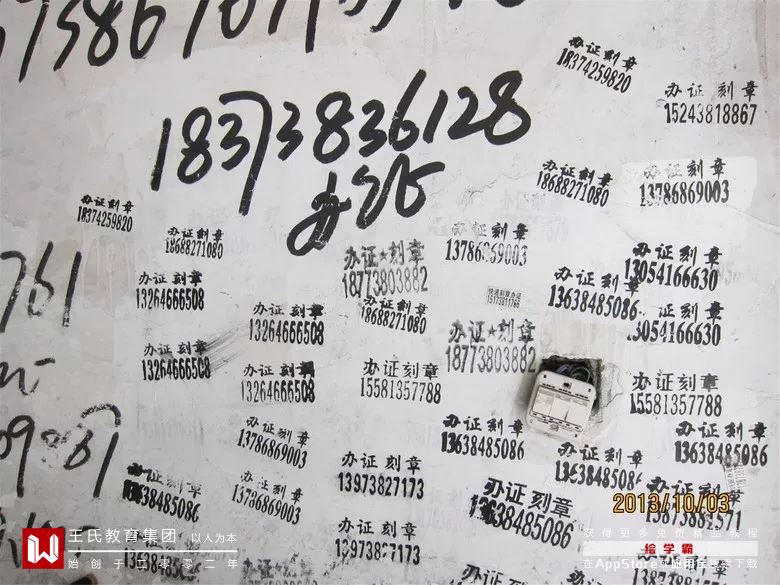 18373836128
办证
办证刻章
18374259820
办证刻章
15243818867
办证刻章
18688271080
办证刻章
13786869003
办证刻章
18374259820
办证刻章
18688271080
办证刻章
13786869003
办证★刻章
18773803882
办证刻章
13054166630
办证刻章
13264666508
办证刻章
13638485086
办证刻章
13264666508
办证刻章
18688271080
证刻章
13054166630
办证★刻章
18773803882
办证刻章
13264666508
办证刻章
13264666508
办证刻章
15581357788
办证刻章
15581357788
办证刻章
13786869003
办证刻章
13638485086
办证刻章
13638485086
办证刻章
13973827173
办证刻章
13638485086
办证刻章
13638485086
办证刻章
13786869003
办证刻章
13638485086
办证刻章
2013/10/03
办证刻章
13973827173
761
王氏教育集团 以人为本
始创于二零零二年
获得更多免费精品教程
绘学霸
在AppStore或应用保搜索下载